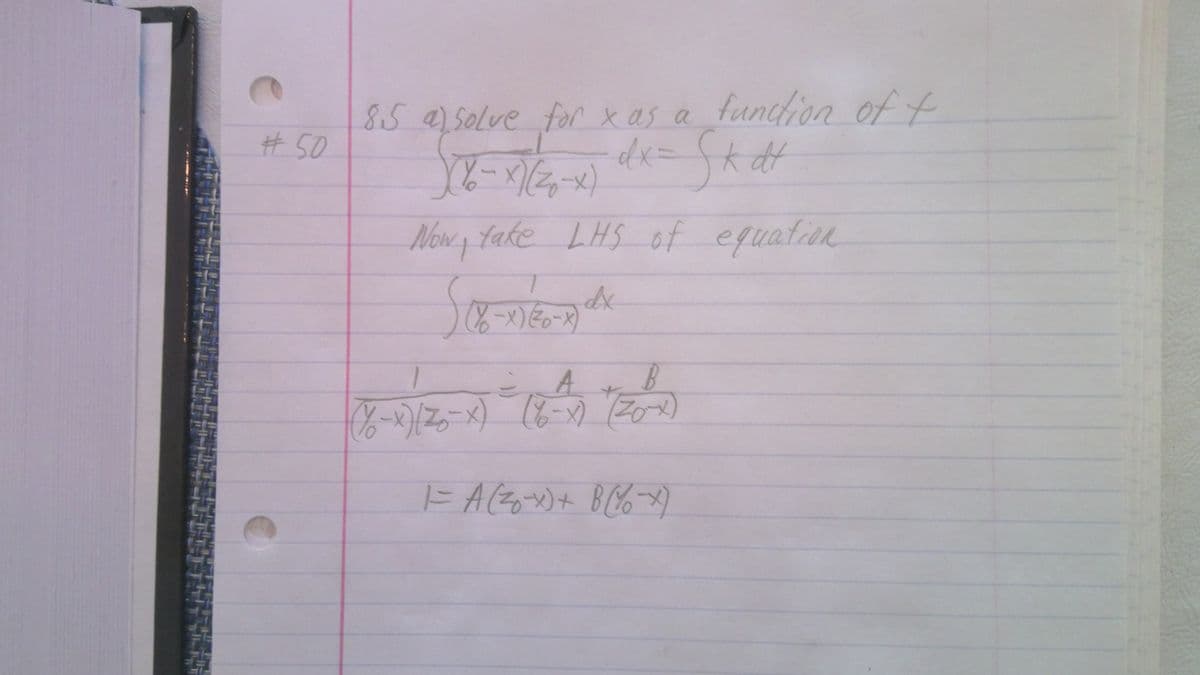 8.5 a) solve for x as a function of t
# 50 ∫ 1/((y₀-x)(z₀-x)) dx = ∫ k dt
Now, take LHS of equation
∫ 1/((y₀-x)(z₀-x)) dx
1/((y₀-x)(z₀-x)) = A/(y₀-x) + B/(z₀-x)
1 = A(z₀-x) + B(y₀-x)